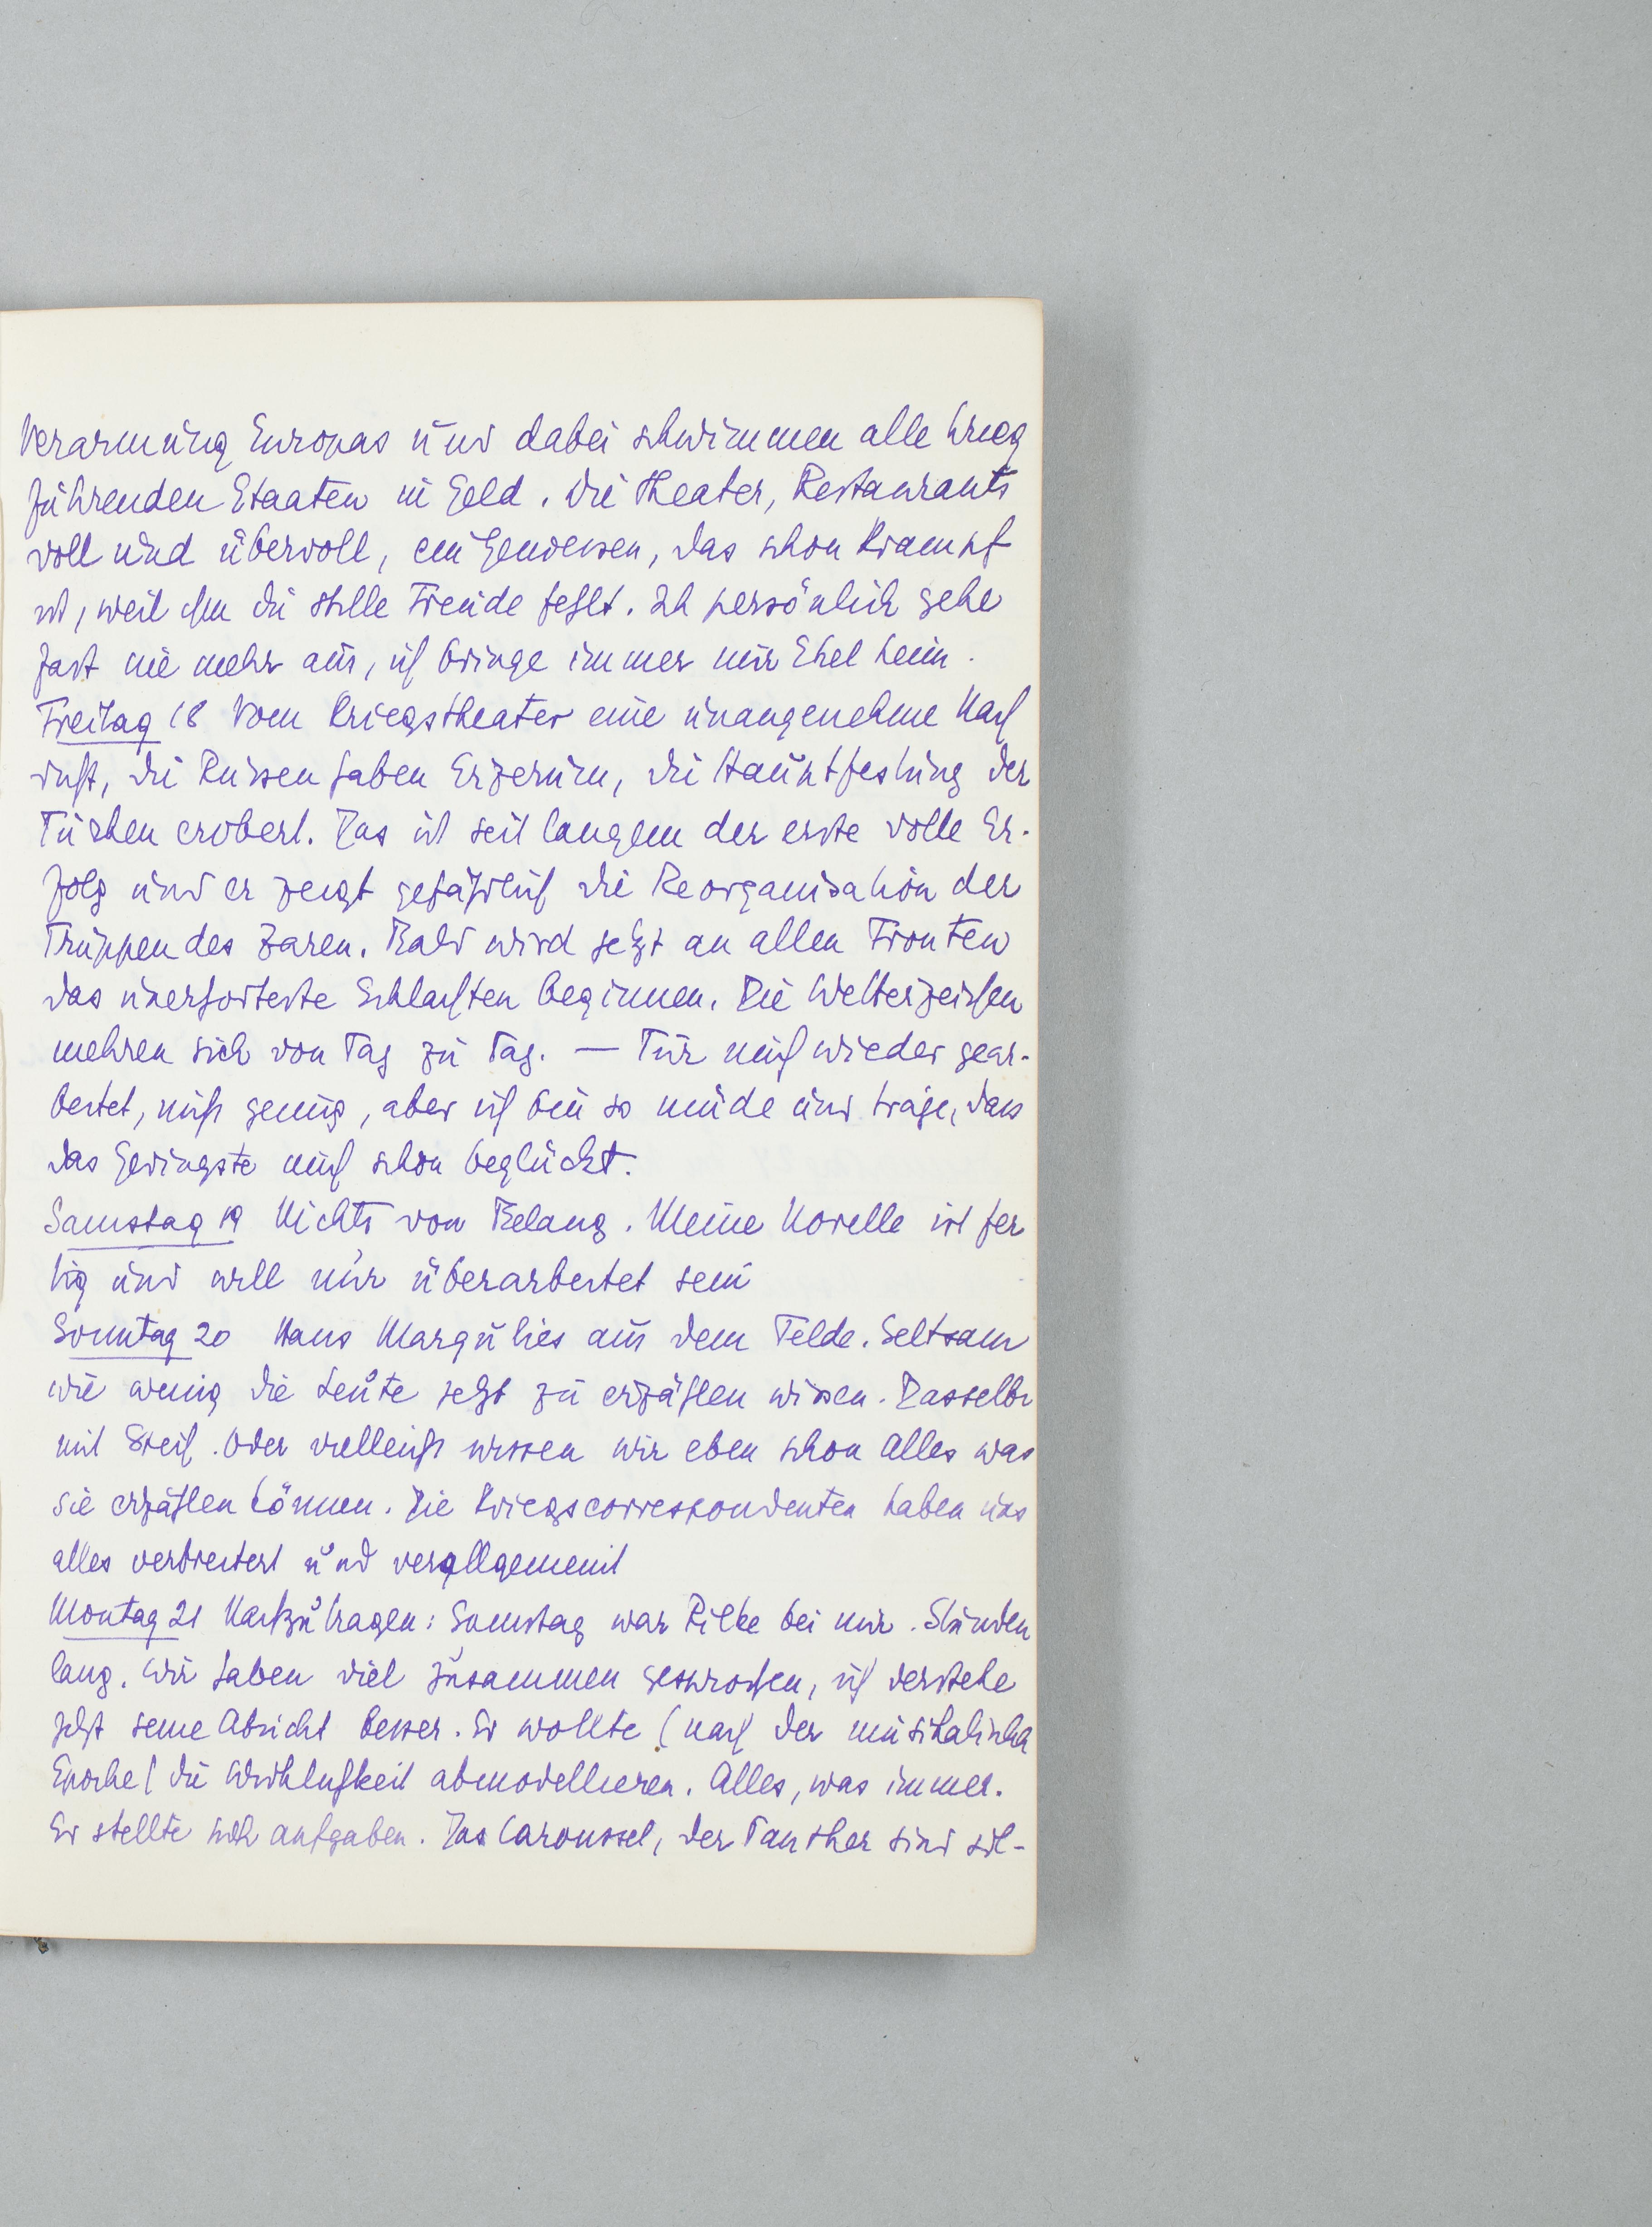 Verarmung Europas und dabei schwimmen alle krieg
führenden Staaten in Geld. Die Theater, Restaurants
voll und übervoll, ein Geniessen, das schon Krampf
ist, weil ihm die stille Freude fehlt. Ich persönlich gehe
fast nie mehr aus, ich bringe immer nur Ekel heim.
Freitag 18 Vom Kriegstheater eine unangenehme Nach
richt, die Russen haben Erzerum, die Hauptfestung der
Türken erobert. Das ist seit langem der erste volle Er-
folg und er zeigt gefährlich die Reorganisation der
Truppen des Zaren. Bald wird jetzt an allen Fronten
das unerhörteste Schlachten beginnen. Die Wetterzeichen
mehren sich von Tag zu Tag. — Für mich wieder gear-
beitet, nicht genug, aber ich bin so müde und träge, dass
das Geringste mich schon beglückt.
Samstag 19 Nichts von Belang. Meine Novelle ist fer
tig und will nur überarbeitet sein
Sonntag 20 Hans Margulies aus dem Felde. Seltsam
wie wenig die Leute jetzt zu erzählen wissen. Dasselbe
mit Sreih. Oder vielleicht wissen wir eben schon Alles was
sie erzählen können. Die Kriegscorrespondenten haben uns
alles verbreitert und verallgemeint
Montag 21 Nachzutragen: Samstag war Rilke bei mir. Stunden
lang. Wir haben viel zusammen gesprochen, ich verstehe
jetzt seine Absicht besser. Er wollte (nach der musikalischen
Epoche) die Wirklichkeit abmodellieren. Alles, was immer.
Er stellte sich Aufgaben. Das Caroussel, der Panther sind sol-